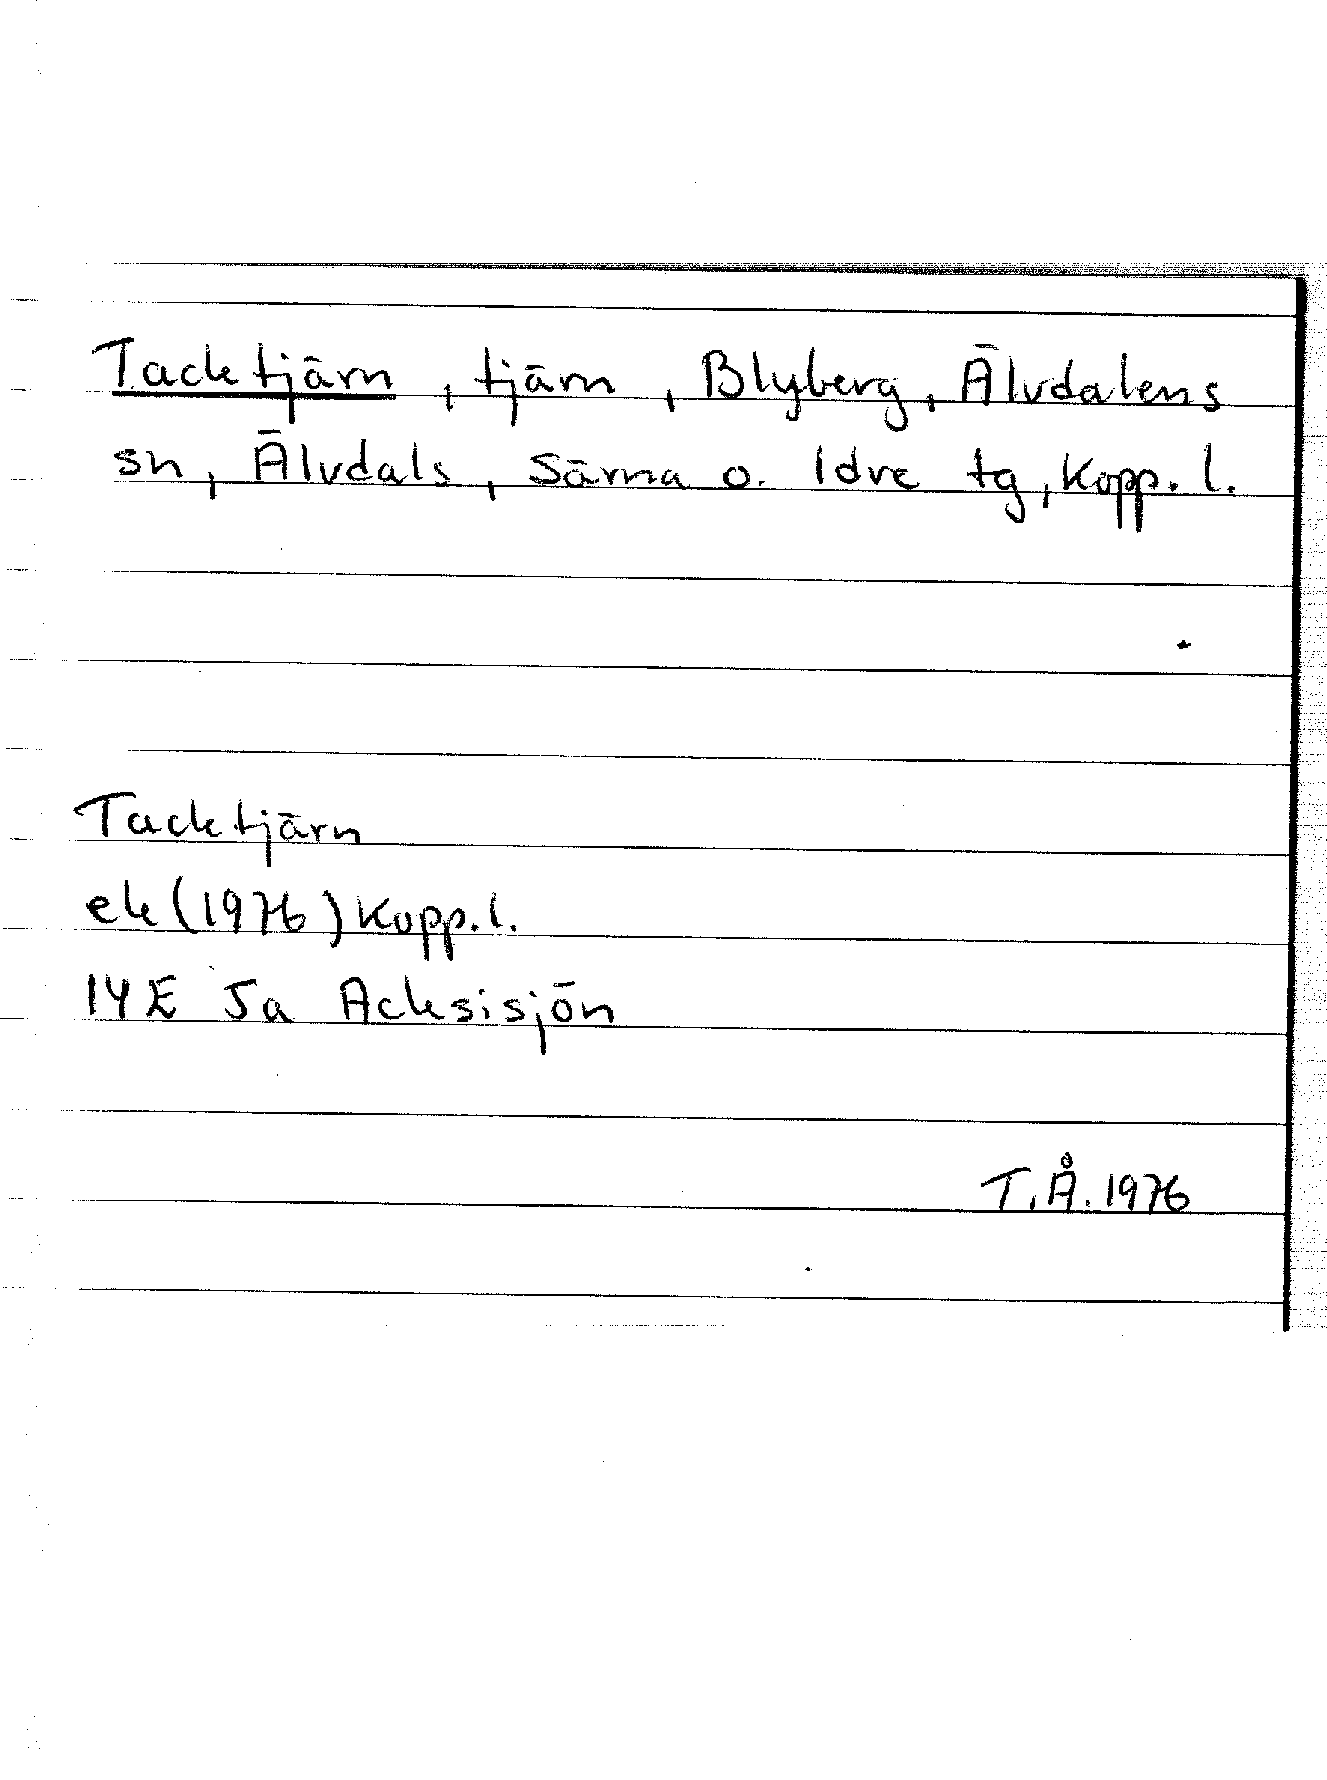 Tacktjärn, tjärn, Blyberg, Älvdalens
sn, Älvdals, Särna o. Idre tg, Kopp. l.
Tacktjärn
ek (1976) Kopp. l.
14E 5a Acksisjön
T.Å. 1976